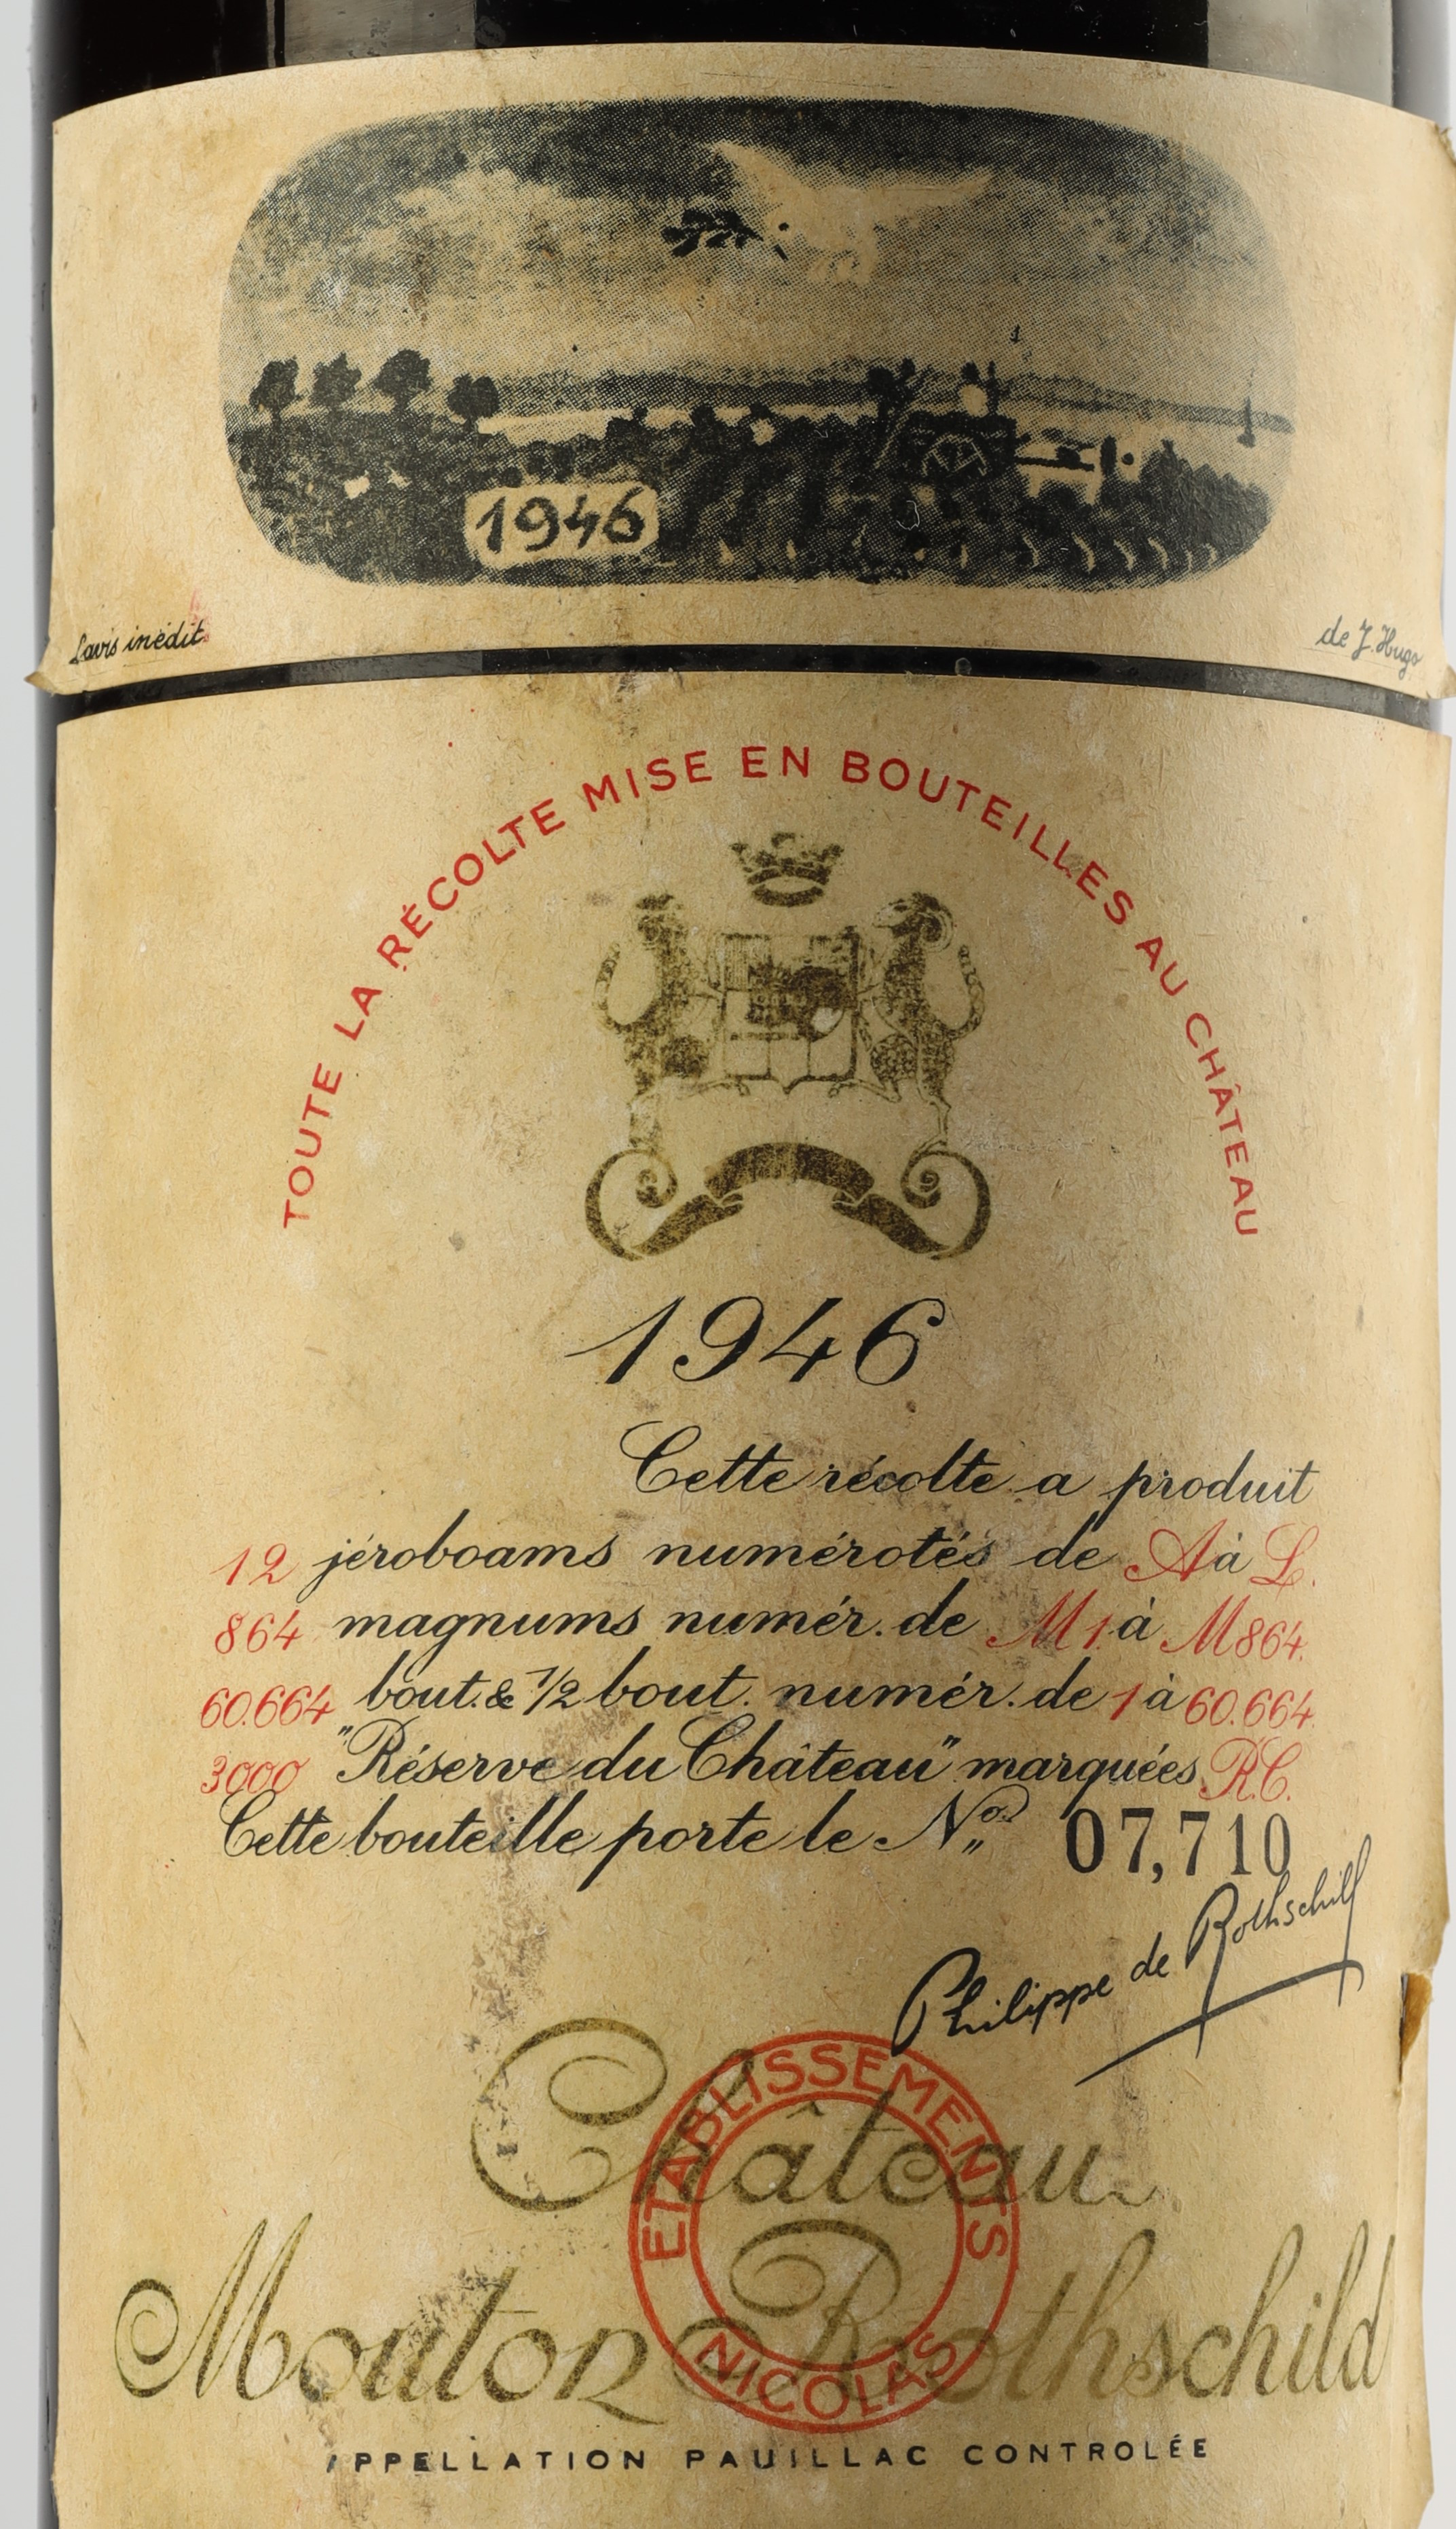 1946
Lavis inédit
de J. Hugo
TOUTE LA RÉCOLTE MISE EN BOUTEILLES AU CHÂTEAU
1946
Cette récolte a produit
12 jéroboams numérotés de A à L.
864 magnums numér. de M1 à M864.
60.664 bout. & 1/2 bout. numér. de 1 à 60.664
3000 "Réserve du Château" marquées R.C.
Cette bouteille porte le No. 07,710
Philippe de Rothschild
ETABLISSEMENTS
NICOLAS
Château
Mouton Rothschild
APPELLATION PAUILLAC CONTROLÉE